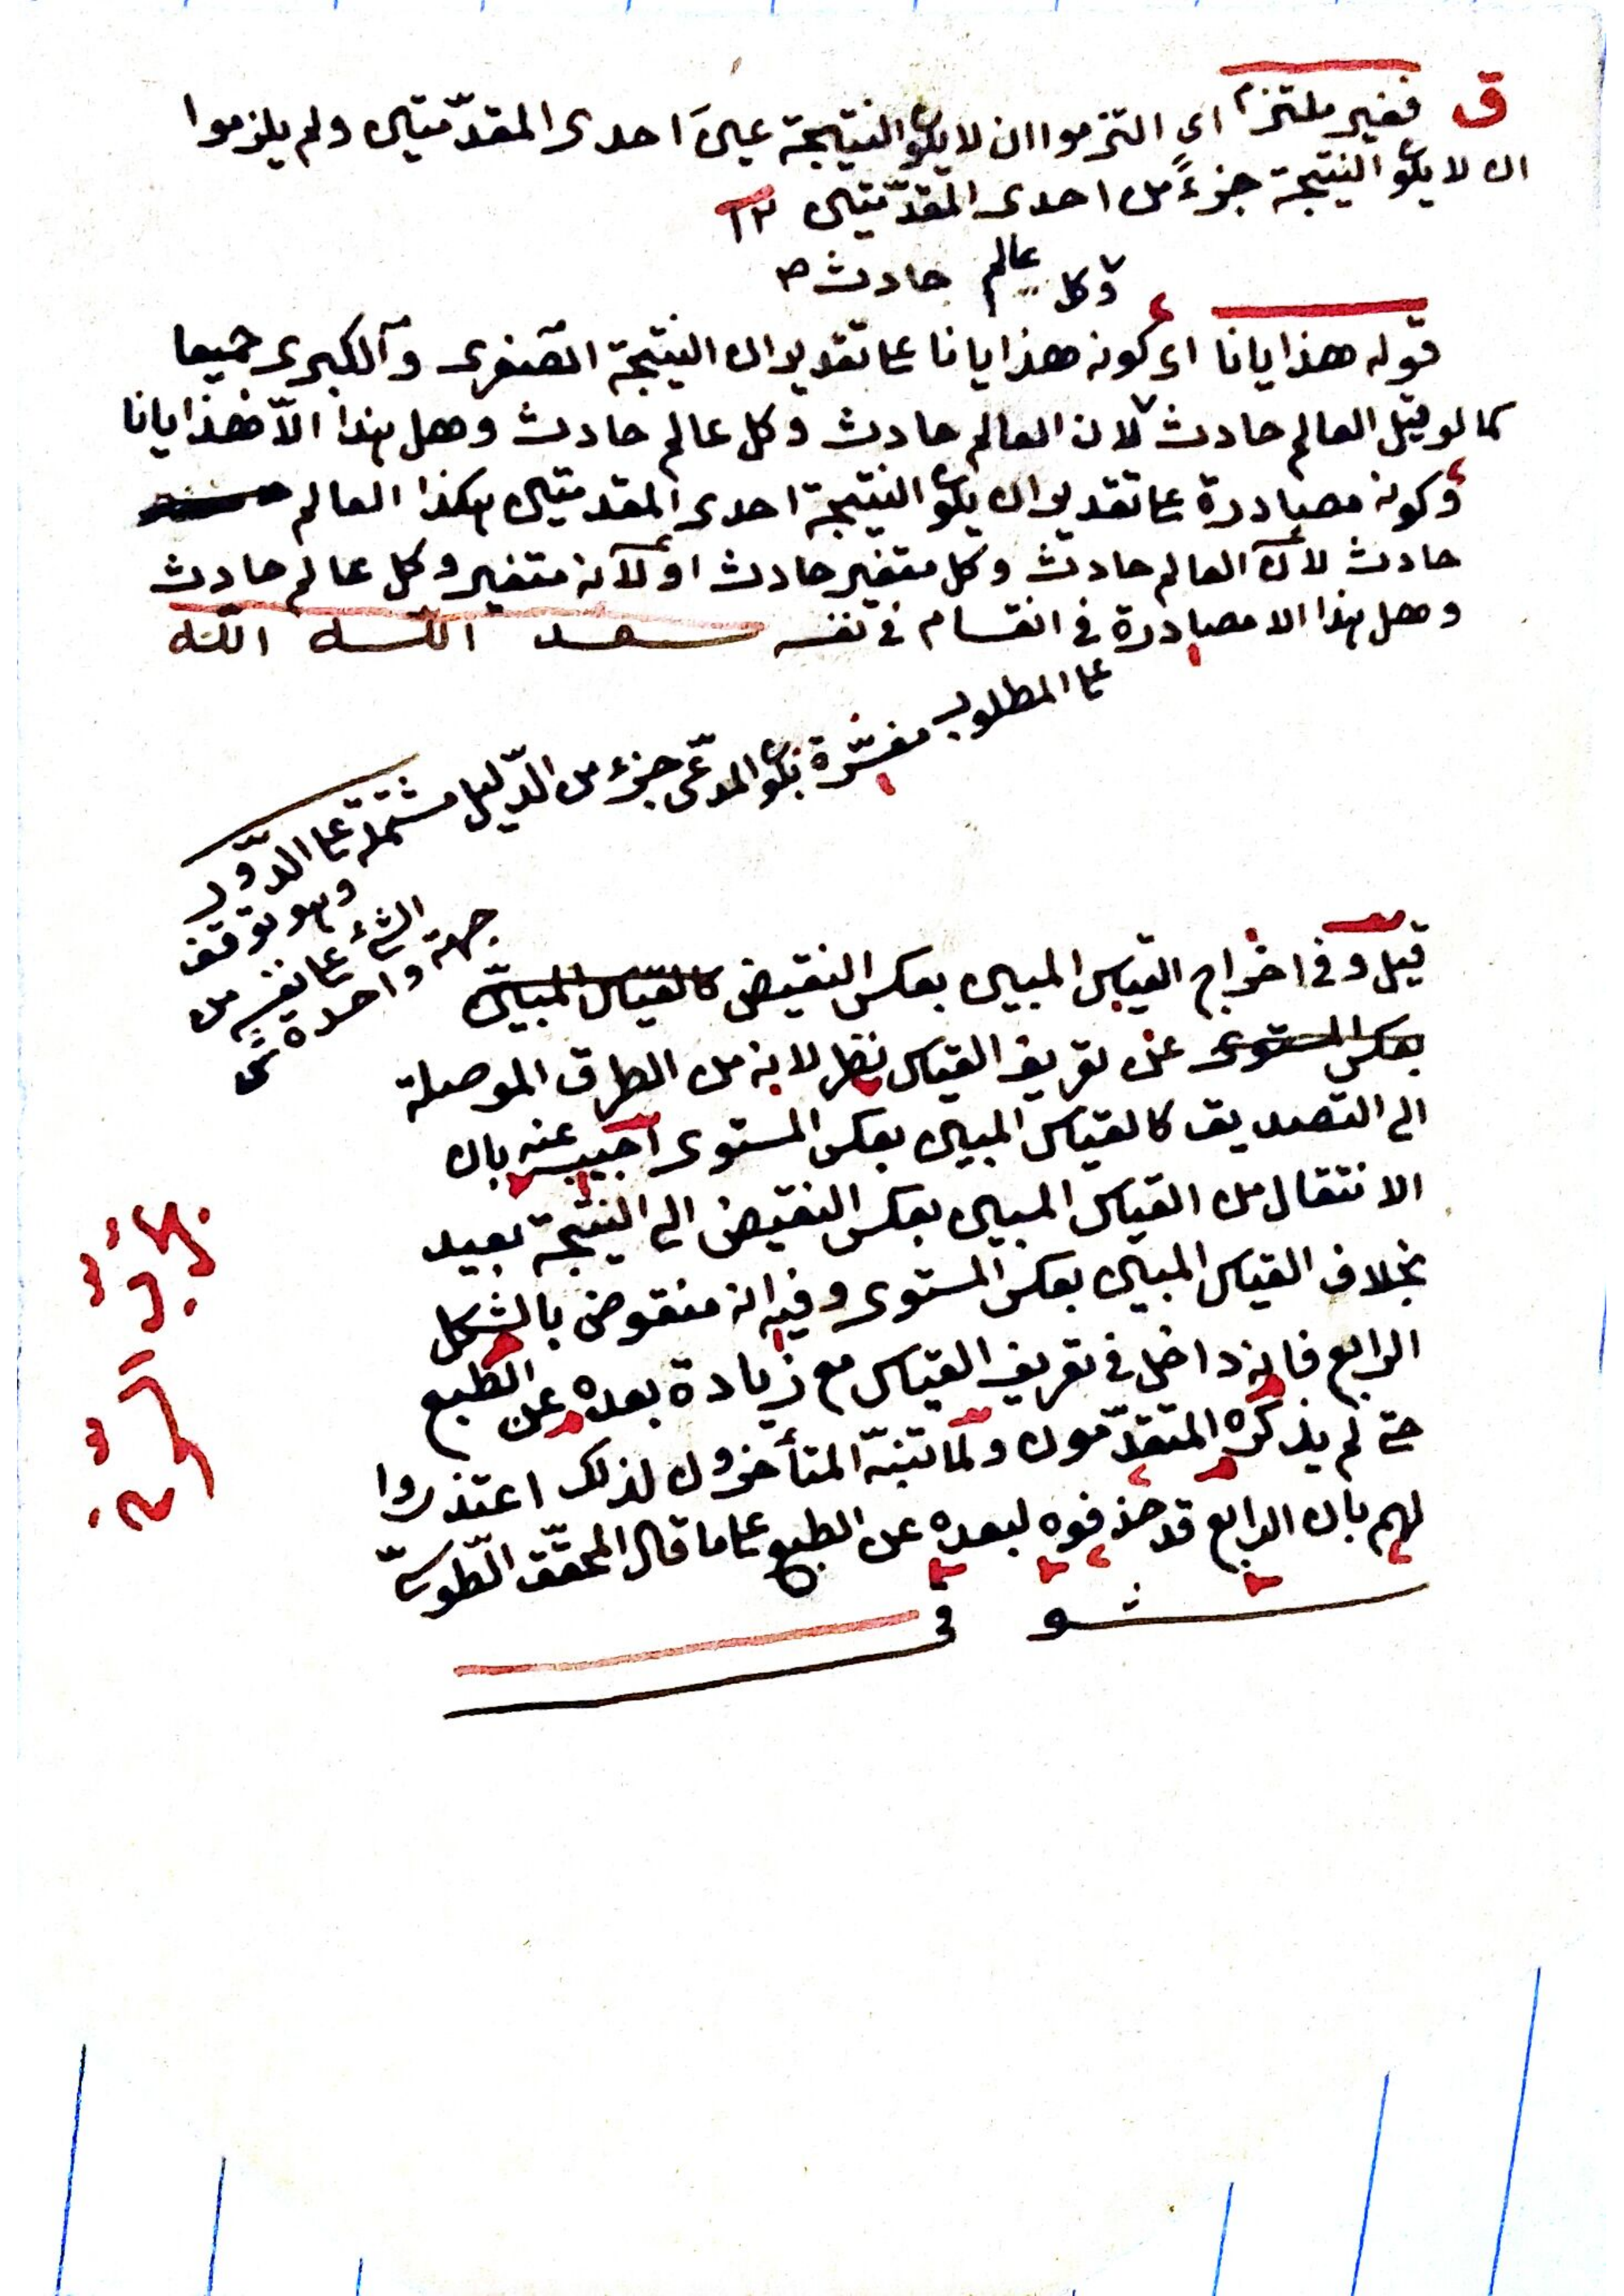 ق فغير ملتزم اى التزموا ان لا يكون النتيجة عينَ احدى المقدّمتين ولم يلزموا
ان لا يكون النتيجة جزءً من احدى المقدّمتين ١٢
وكل عالم حادث
قوله هذايانا اى كونه هذايانا على تقدير ان النتيجة الصّغرى وآلكبرى جميعا
كما لو قيل العالم حادث لان العالم حادث وكل عالم حادث وهل هذا الاّ هذايانا
وكونه مصادرة على تقدير ان يكون النتيجة احدى المقدمتين هكذا العالم
حادث لانّ العالم حادث وكل متغير حادث او لآنه متغير وكل عالم حادث
وهل هذا الا مصادرة فى انقسام فى نفسه سعد
على المطلوب مفسّرة بكون المدّعى جزء من الدّليل مشتملة على الدّور
وهو توقف
الشئ على نفسه من
جهة واحدة
قيل وفى اخراج القياس المبين بعكس النقيض كالقياس المبيّن
بعكس المستوى عن تعريف القياس نظر لانه من الطرق الموصلة
الى التصديق كالقياس المبين بعكس المستوى اجيب عنه بان
الانتقال من القياس المبين بعكس النقيض الى النتيجة بعيد
بخلاف القياس المبين بعكس المستوى وفيه انه منقوض بالشكل
الرابع فانه داخل فى تعريف القياس مع زيادة بعده عن الطبع
حتى لم يذكره المتقدّمون ولمّا تنبّه المتأخرون لذلك اعتذروا
لهم بان الرابع قد حذفوه لبعده عن الطبع على ما قال المحقّق الطّوسىّ
شوقى